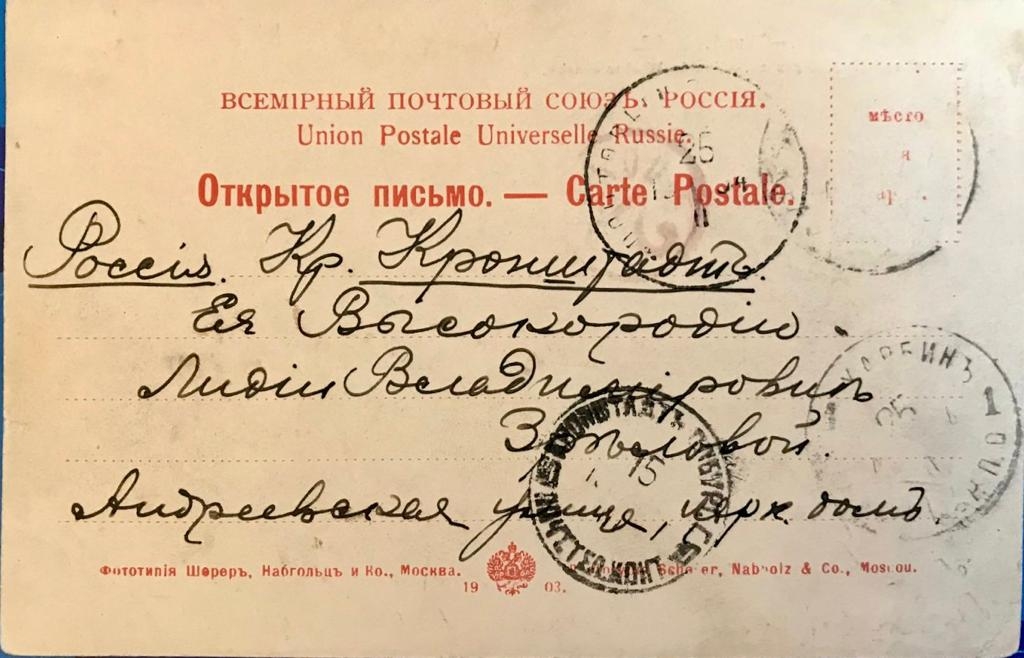 ВСЕМІРНЫЙ ПОЧТОВЫЙ СОЮЗЪ. РОССІЯ.
Union Postale Universelle Russie.
Открытое письмо. — Carte Postale.
мѣсто
25
Россія. Кр. Кронштадтъ.
Ея Высокородію
Лидіи Владиміровнѣ
ХАРБИНЪ
25
1
КРОНШТАДТЪ
15
Андреевская улица, церк. домъ.
Фототипія Шереръ, Набгольцъ и Ко., Москва.
Nabholz & Co., Moscou.
1903.